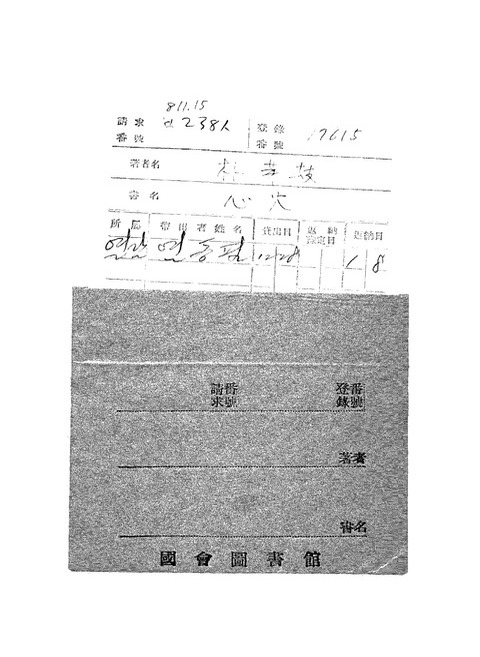 811.15
請求 ㅂ238ㅅ 登錄 17615
番號 番號
著者名 朴
書名 心火
所屬 帶出者姓名 貸出日 返納豫定日 返納日
열람 연 동 12 28 1 8
請求 番號 登錄 番號
著者
書名
國會圖書館